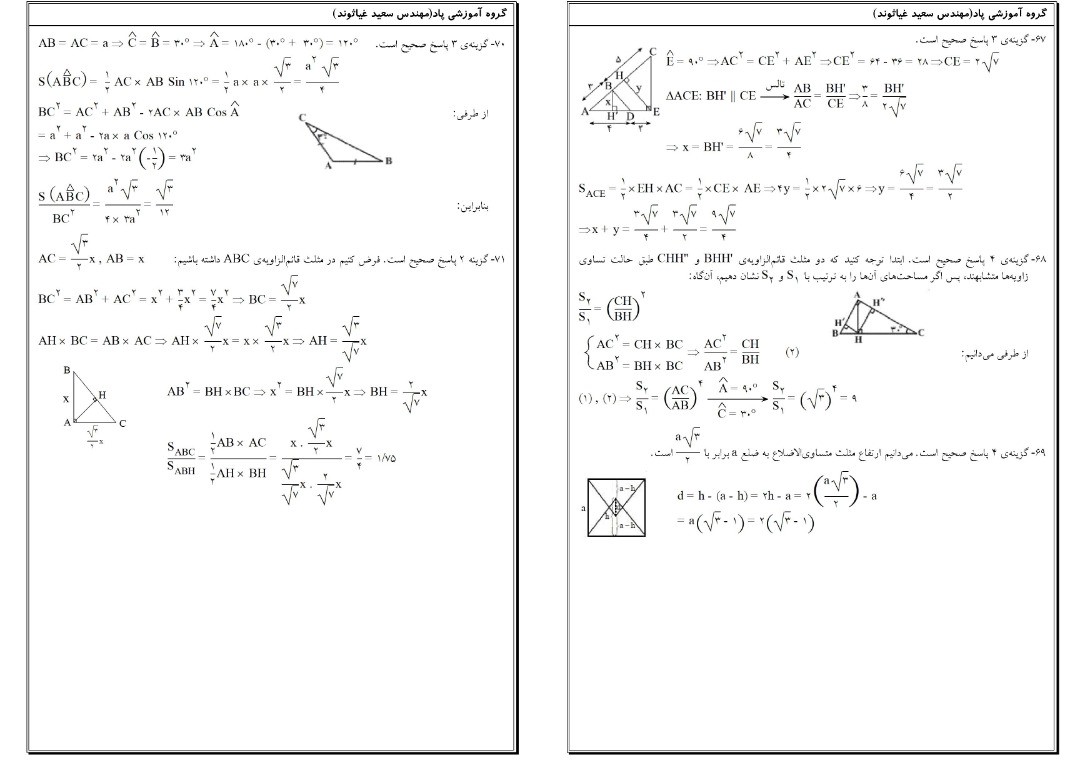 گروه آموزشی پاد(مهندس سعید غیاثوند)
۶۷- گزینه‌ی ۳ پاسخ صحیح است.
Ê = ۹۰° ⇒ AC² = CE² + AE² ⇒ CE² = ۶۴ - ۳۶ = ۲۸ ⇒ CE = ۲√۷
ΔACE: BH' || CE تالس → AB/AC = BH'/CE ⇒ ۳/۸ = BH'/۲√۷
⇒ x = BH' = ۶√۷/۸ = ۳√۷/۴
C ۵ H ۳ B y x A H' D E ۴ ۲
S_ACE = ۱/۲ × EH × AC = ۱/۲ × CE × AE ⇒ ۴y = ۱/۲ × ۲√۷ × ۶ ⇒ y = ۶√۷/۴ = ۳√۷/۲
⇒ x + y = ۳√۷/۴ + ۳√۷/۲ = ۹√۷/۴
۶۸- گزینه‌ی ۴ پاسخ صحیح است. ابتدا توجه کنید که دو مثلث قائم‌الزاویه‌ی BHH' و CHH" طبق حالت تساوی
زاویه‌ها متشابهند، پس اگر مساحت‌های آن‌ها را به ترتیب با S۱ و S۲ نشان دهیم، آن‌گاه:
S۲/S۱ = (CH/BH)²
A H" H' ۳۰° B H C
از طرفی می‌دانیم:
{ AC² = CH × BC
AB² = BH × BC ⇒ AC²/AB² = CH/BH (۲)
(۱) , (۲) ⇒ S۲/S۱ = (AC/AB)⁴ Â = ۹۰° Ĉ = ۳۰° → S۲/S۱ = (√۳)⁴ = ۹
۶۹- گزینه‌ی ۴ پاسخ صحیح است. می‌دانیم ارتفاع مثلث متساوی‌الاضلاع به ضلع a برابر با a√۳/۲ است.
d = h - (a - h) = ۲h - a = ۲(a√۳/۲) - a
= a(√۳ - ۱) = ۲(√۳ - ۱)
a a-h h a-h
گروه آموزشی پاد(مهندس سعید غیاثوند)
۷۰- گزینه‌ی ۳ پاسخ صحیح است. AB = AC = a ⇒ Ĉ = B̂ = ۳۰° ⇒ Â = ۱۸۰° - (۳۰° + ۳۰°) = ۱۲۰°
S(AB̂C) = ۱/۲ AC × AB Sin ۱۲۰° = ۱/۲ a × a × √۳/۲ = a²√۳/۴
از طرفی: BC² = AC² + AB² - ۲AC × AB Cos Â
= a² + a² - ۲a × a Cos ۱۲۰°
⇒ BC² = ۲a² - ۲a²(-۱/۲) = ۳a²
C A B
بنابراین: S(AB̂C)/BC² = a²√۳/۴ × ۳a² = √۳/۱۲
۷۱- گزینه ۲ پاسخ صحیح است. فرض کنیم در مثلث قائم‌الزاویه‌ی ABC داشته باشیم: AC = √۳/۲ x , AB = x
BC² = AB² + AC² = x² + ۳/۴ x² = ۷/۴ x² ⇒ BC = √۷/۲ x
AH × BC = AB × AC ⇒ AH × √۷/۲ x = x × √۳/۲ x ⇒ AH = √۳/√۷ x
B x H A C √۳/۲ x
AB² = BH × BC ⇒ x² = BH × √۷/۲ x ⇒ BH = ۲/√۷ x
S_ABC/S_ABH = ۱/۲ AB × AC / ۱/۲ AH × BH = x . √۳/۲ x / √۳/√۷ x . ۲/√۷ x = ۷/۴ = ۱/۷۵